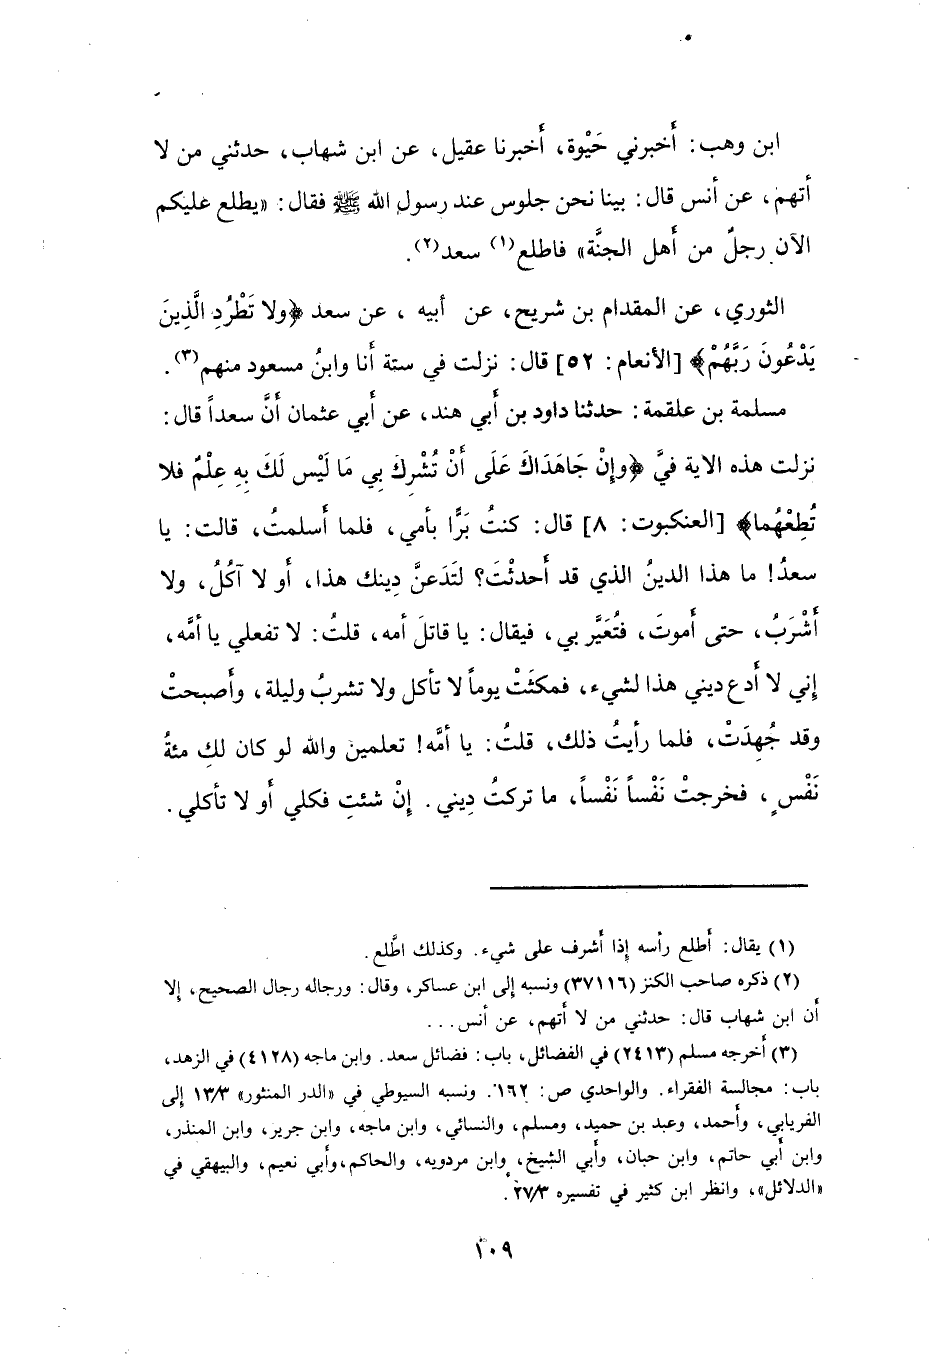 ابن وهب: أَخبرني حَيْوة، أَخبرنا عقيل، عن ابن شهاب، حدثني من لا
أتهم، عن أنس قال: بينا نحن جلوس عند رسول الله ﷺ فقال: «يطلع عليكم
الآن رجلٌ من أَهل الجنَّة» فاطلع(١) سعد(٢).
الثوري، عن المقدام بن شريح، عن أبيه، عن سعد ﴿ولا تَطْرُدِ الَّذِينَ
يَدْعُونَ رَبَّهُمْ﴾ [الأنعام: ٥٢] قال: نزلت في ستة أَنا وابنُ مسعود منهم(٣).
مسلمة بن علقمة: حدثنا داود بن أَبي هند، عن أَبي عثمان أَنَّ سعداً قال:
نزلت هذه الاية فيَّ ﴿وإِنْ جَاهَدَاكَ عَلَى أَنْ تُشْرِكَ بِي مَا لَيْس لَكَ بِهِ عِلْمٌ فلا
تُطِعْهُما﴾ [العنكبوت: ٨] قال: كنتُ بَرًّا بأمي، فلما أَسلمتُ، قالت: يا
سعدُ! ما هذا الدينُ الذي قد أَحدثْتَ؟ لتَدَعنَّ دِينك هذا، أَو لا آكُلُ، ولا
أَشْرَبُ، حتى أَموتَ، فتُعَيَّر بي، فيقال: يا قاتلَ أمه، قلتُ: لا تفعلي يا أمَّه،
إِني لا أَدع ديني هذا لشيء، فمكثَتْ يوماً لا تأكل ولا تشربُ وليلة، وأَصبحتْ
وقد جُهِدَتْ، فلما رأَيتُ ذلك، قلتُ: يا أمَّه! تعلمين والله لو كان لكِ مئةُ
نَفْسٍ، فخرجتْ نَفْساً نَفْساً، ما تركتُ دِيني. إِنْ شئتِ فكلي أَو لا تأكلي.
(١) يقال: أَطلع رأسه إِذا أَشرف على شيء. وكذلك اطَّلع.
(٢) ذكره صاحب الكنز (٣٧١١٦) ونسبه إلى ابن عساكر، وقال: ورجاله رجال الصحيح، إلا
أَن ابن شهاب قال: حدثني من لا أَتهم، عن أنس...
(٣) أَخرجه مسلم (٢٤١٣) في الفضائل، باب: فضائل سعد. وابن ماجه (٤١٢٨) في الزهد،
باب: مجالسة الفقراء. والواحدي ص: ١٦٢. ونسبه السيوطي في «الدر المنثور» ١٣/٣ إلى
الفريابي، وأَحمد، وعبد بن حميد، ومسلم، والنسائي، وابن ماجه، وابن جرير، وابن المنذر،
وابن أَبي حاتم، وابن حبان، وأَبي الشيخ، وابن مردويه، والحاكم، وأَبي نعيم، والبيهقي في
«الدلائل»، وانظر ابن كثير في تفسيره ٢٧/٣.
١٠٩